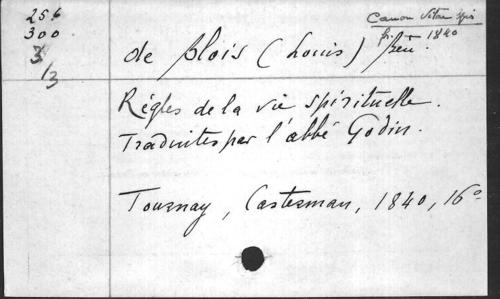 256
300
3/3
Canon Vitae Spir.
fr. 1840
de Blois (Louis)
Règles de la vie spirituelle.
Traduites par l'abbé Godin.
Tournay, Casterman, 1840, 16°